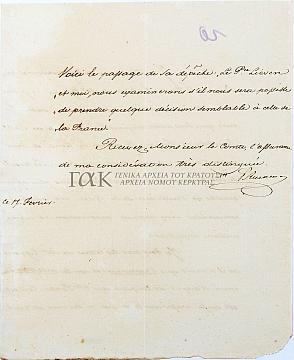 20
Voici le passage de sa dépêche. Le Pce Lieven
et moi, nous examinerons s'il nous sera possible
de prendre quelque décision semblable à celle de
la France.
Recevez, Monsieur le Comte, l'assurance
de ma considération très distinguée.
ΓΑΚ ΓΕΝΙΚΑ ΑΡΧΕΙΑ ΤΟΥ ΚΡΑΤΟΥΣ
ΑΡΧΕΙΑ ΝΟΜΟΥ ΚΕΡΚΥΡΑΣ
ce 17 Fevrier